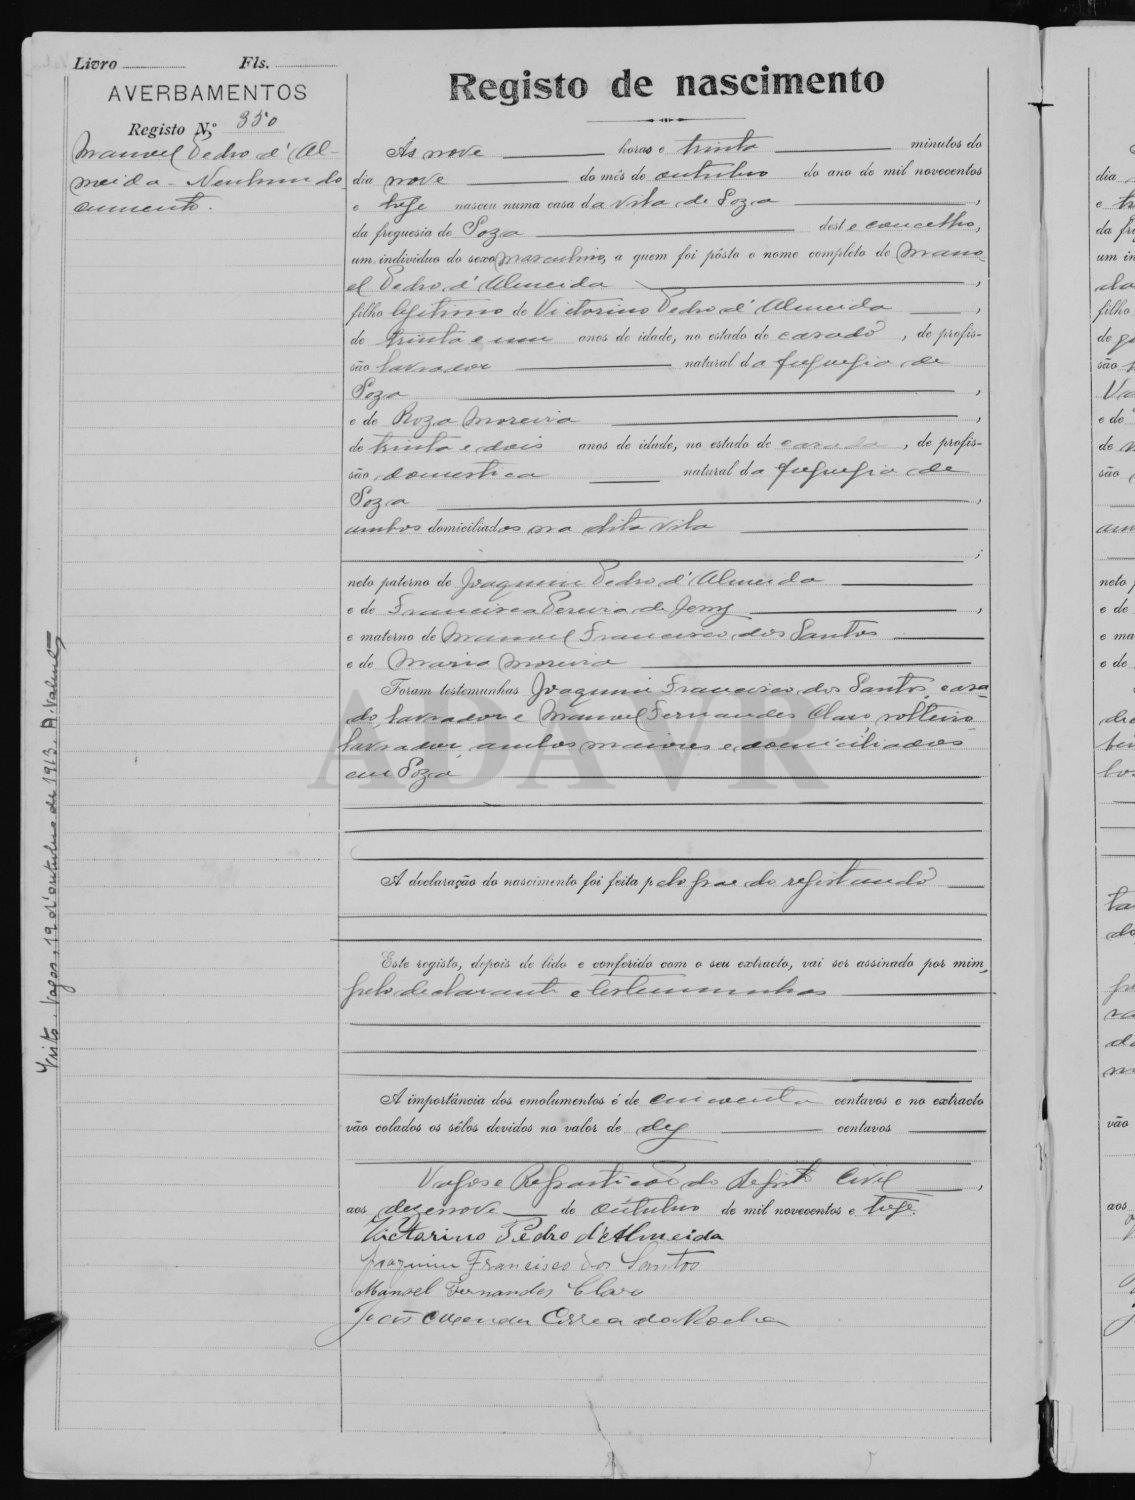 Livro Fls.
AVERBAMENTOS
Registo N.º 350
Manuel Pedro d'Al-
meida - Nenhum do
cumento.
Visto. Vagos, 19 d'outubro de 1913. A. Valente
Registo de nascimento
Ás nove horas e trinta minutos do
dia nove do mês de outubro do ano de mil novecentos
e treze nasceu numa casa da vila de Soza,
da freguesia de Soza deste concelho,
um indivíduo do sexo masculino, a quem foi pôsto o nome completo de Manu
el Pedro d'Almeida,
filho legitimo de Victorino Pedro d'Almeida,
de trinta e um anos de idade, no estado de casado, de profis-
são lavrador natural da freguesia de
Soza,
e de Roza Moreira,
de trinta e dois anos de idade, no estado de casada, de profis-
são domestica natural da freguesia de
Soza,
ambos domiciliados na dita vila
;
neto paterno de Joaquim Pedro d'Almeida
e de Francisca Pereira de,
e materno de Manuel Francisco dos Santos
e de Maria Moreira
Foram testemunhas Joaquim Francisco dos Santos, casa
do, lavrador e Manuel Fernandes Claro, solteiro
lavrador, ambos maiores e domiciliados
em Soza
ADAVR
A declaração do nascimento foi feita pelo pae do registando
Este registo, depois de lido e conferido com o seu extracto, vai ser assinado por mim,
pelo declarante e testemunhas
A importância dos emolumentos é de cincoenta centavos e no extracto
vão colados os sêlos devidos no valor de dez centavos
Vagos e Repartição do Registo Civil,
aos dezenove de outubro de mil novecentos e treze.
Victorino Pedro d'Almeida
Joaquim Francisco dos Santos
Manoel Fernandes Claro
João Mendes Correa da Rocha